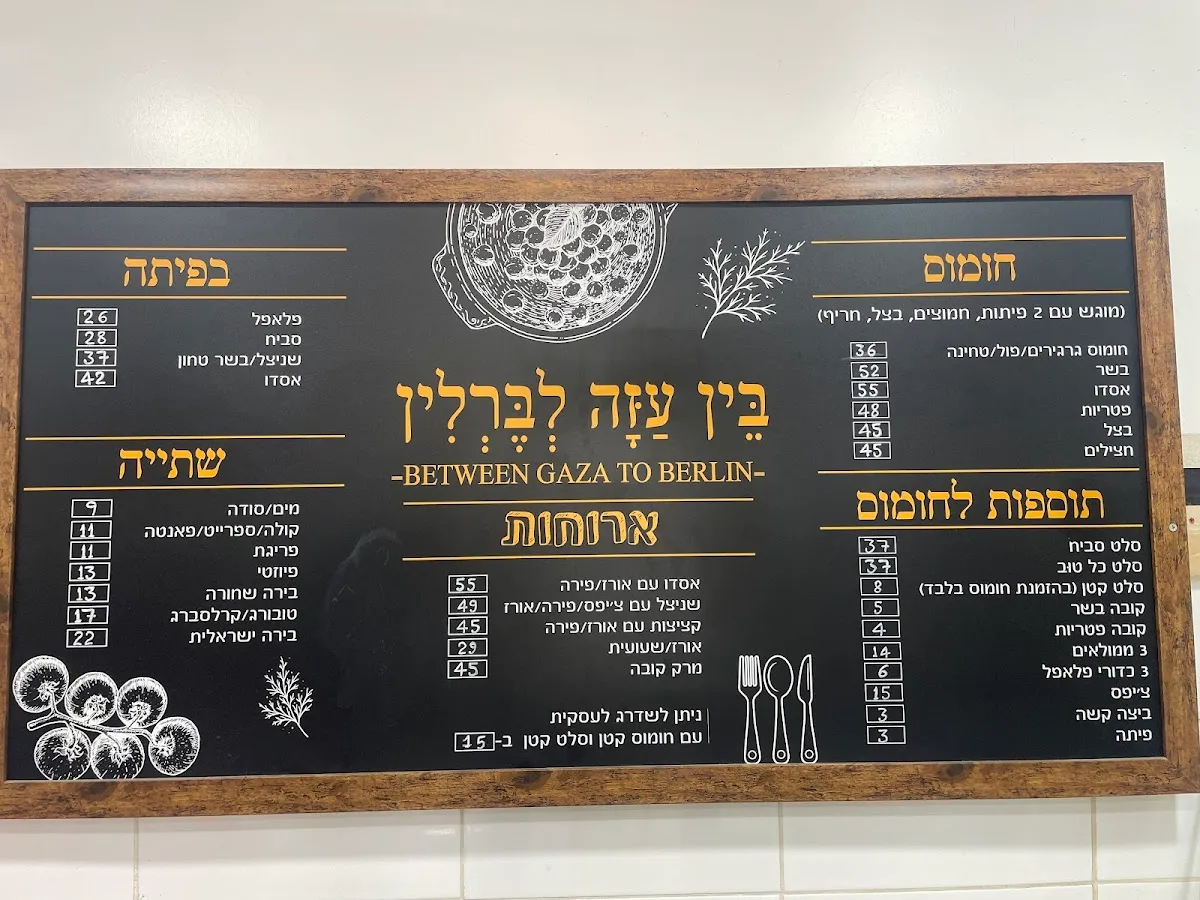 בֵּין עַזָּה לְבֶּרְלִין
-BETWEEN GAZA TO BERLIN-
חומוס
(מוגש עם 2 פיתות, חמוצים, בצל, חריף)
חומוס גרגירים/פול/טחינה 36
בשר 52
אסדו 55
פטריות 48
בצל 45
חצילים 45
תוספות לחומוס
סלט סביח 37
סלט כל טוב 37
סלט קטן (בהזמנת חומוס בלבד) 8
קובה בשר 5
קובה פטריות 4
3 ממולאים 14
3 כדורי פלאפל 6
צ׳יפס 15
ביצה קשה 3
פיתה 3
ארוחות
אסדו עם אורז/פירה 55
שניצל עם צ׳יפס/פירה/אורז 49
קציצות עם אורז/פירה 45
אורז/שעועית 29
מרק קובה 45
ניתן לשדרג לעסקית
עם חומוס קטן וסלט קטן ב-15
בפיתה
פלאפל 26
סביח 28
שניצל/בשר טחון 37
אסדו 42
שתייה
מים/סודה 9
קולה/ספרייט/פאנטה 11
פריגת 11
פיוזטי 13
בירה שחורה 13
טובורג/קרלסברג 17
בירה ישראלית 22